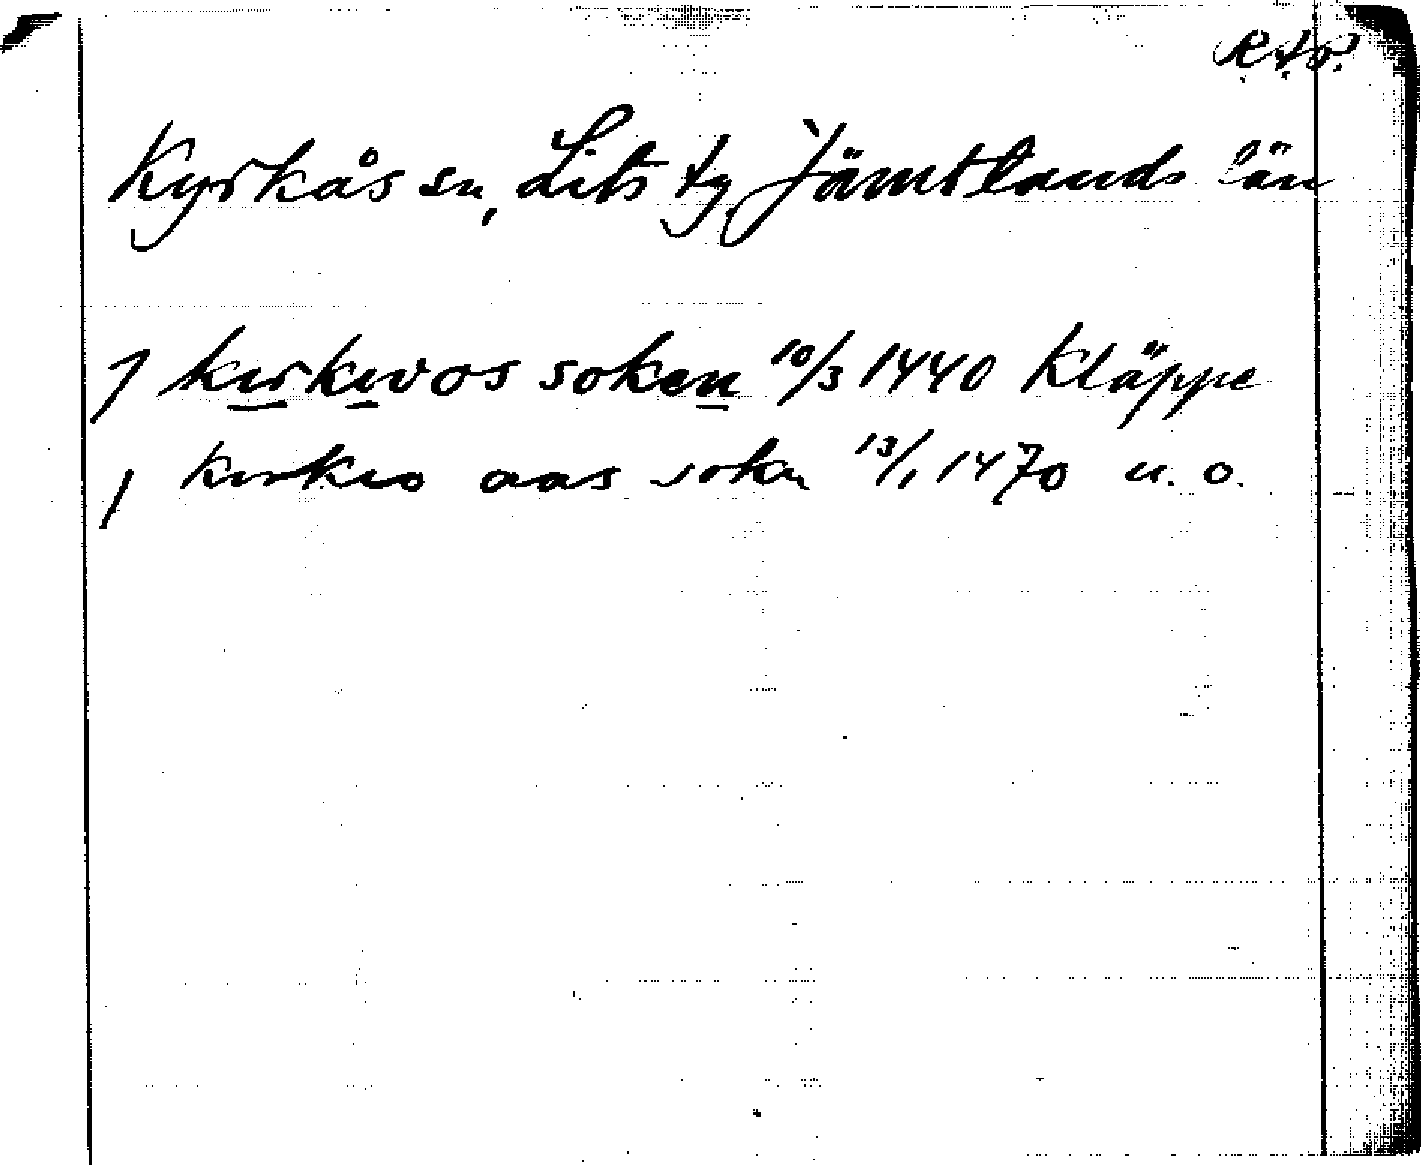 Kyrkås sn, Lits tg Jämtlands län
j kirkwos soken 10/3 1440 Kläppe
j kirkio aas soken 13/1 1470 u. o.